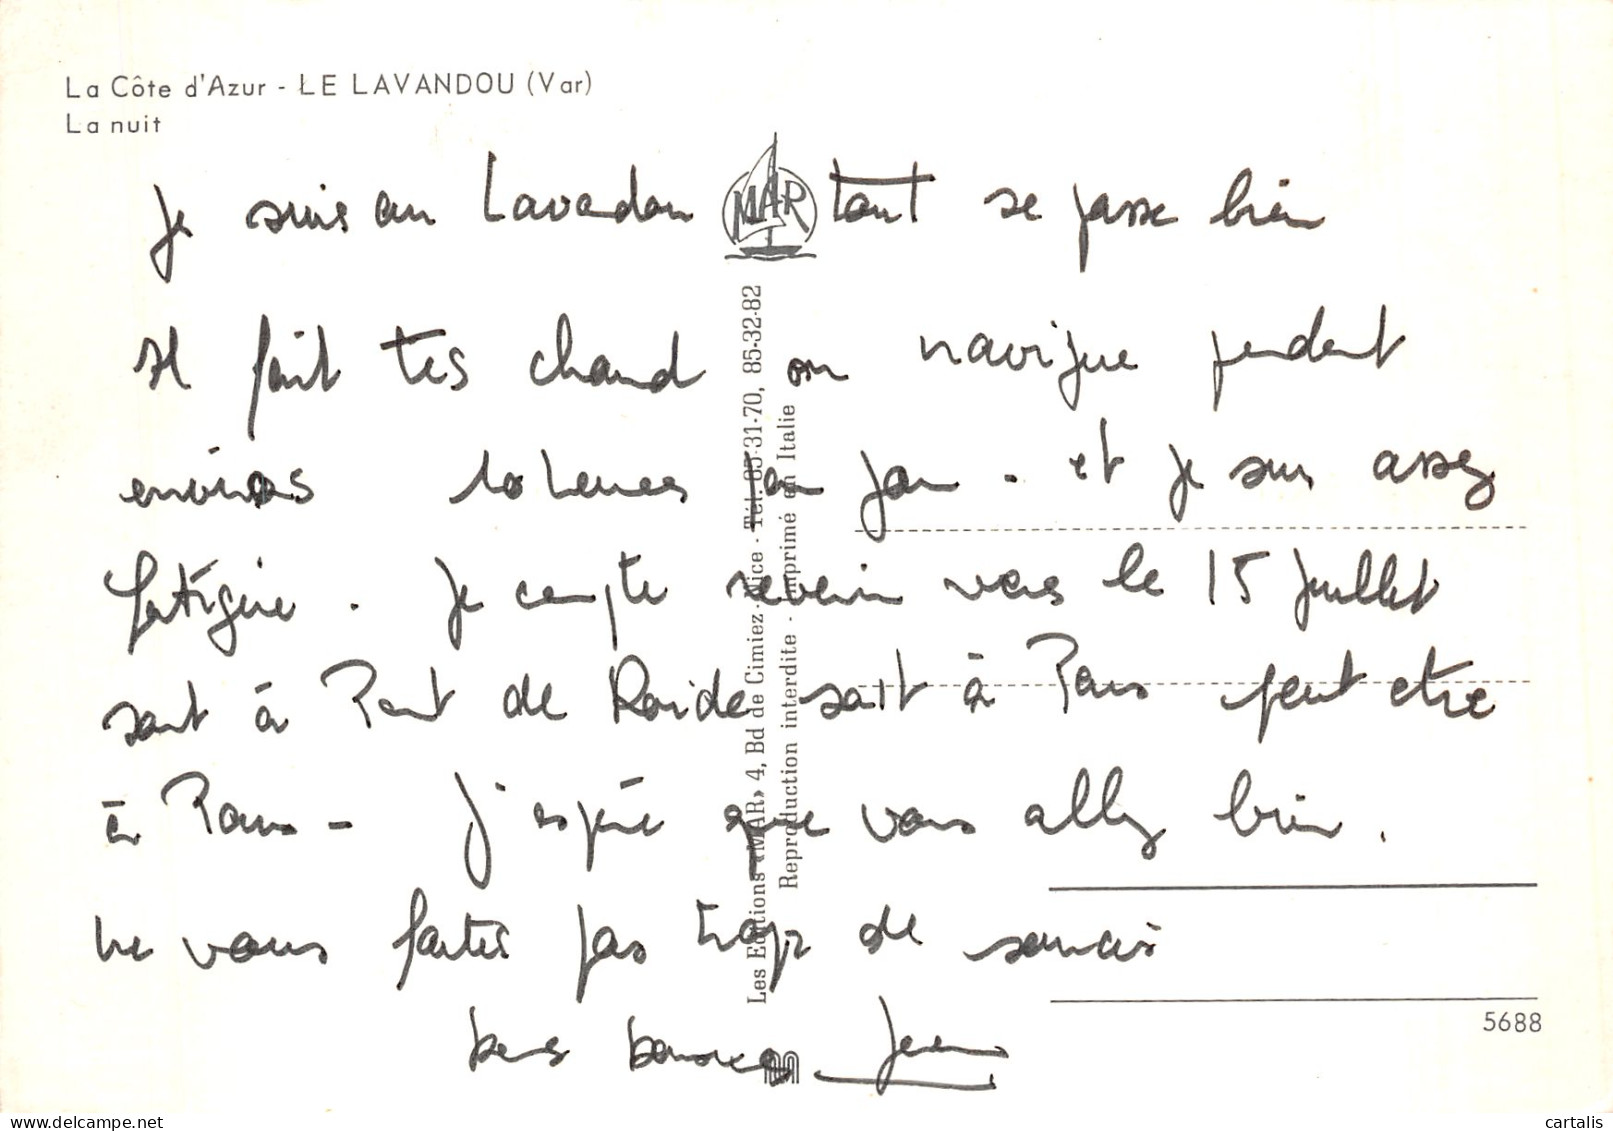 La Côte d'Azur - LE LAVANDOU (Var)
La nuit
MAR
Je suis au Lavadou tout se passe bien
Il fait tes chaud on navigue pendant
environs 10 heures par jour. et je suis assez
fatiguée. Je compte revenir vers le 15 juillet
soit à Pont de Roide soit à Paris peut etre
à Paris - J'espère que vous allez bien.
ne vous faites pas trop de soucis
bons baisers Jean
Les Editions «MAR» 4, Bd de Cimiez - Nice - Tél. 85-31-70, 85-32-82
Reproduction interdite - Imprimé en Italie
5688
delcampe.net
cartalis